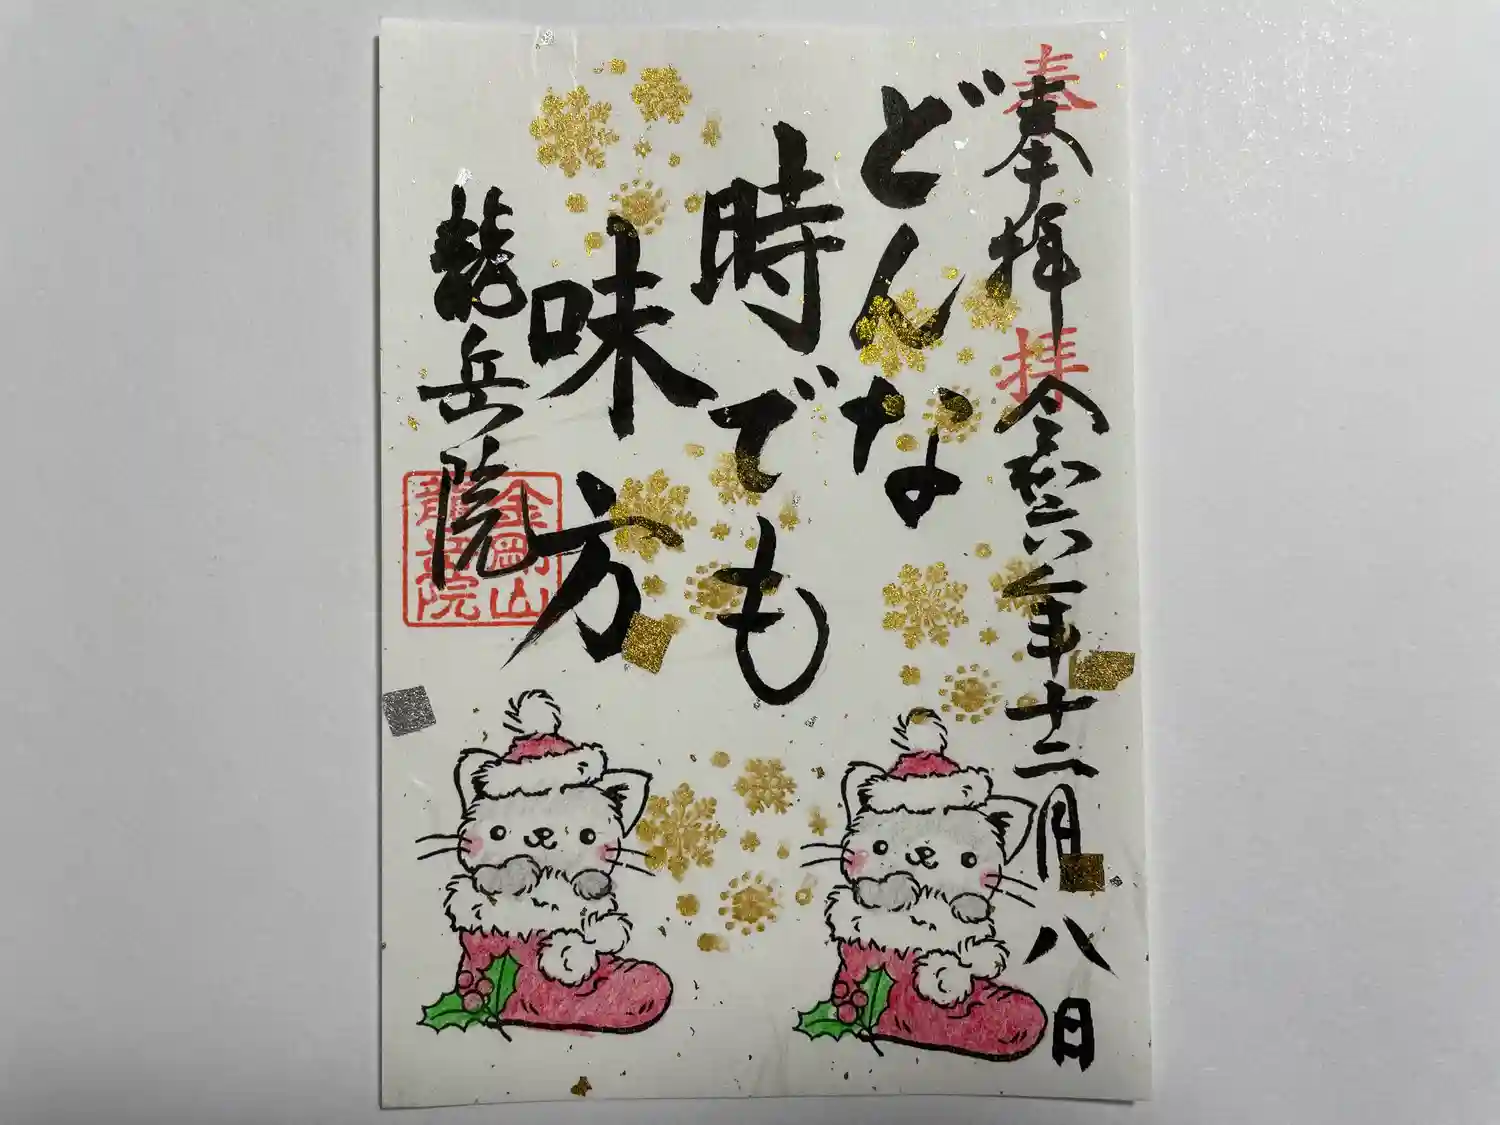 奉拝
奉拝
令和六年十二月八日
どんな
時でも
味方
龍岳院
金剛山
龍岳院